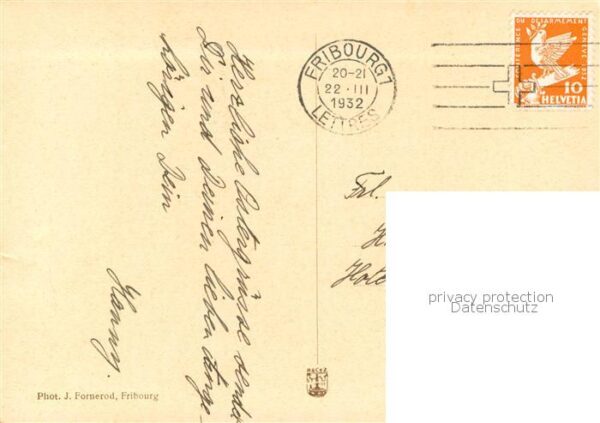 Herzliche Ostergrüsse sendet
Dir und Deinen lieben Ange-
hörigen Dein
Hanny.
FRIBOURG 1
20-21
22·III
1932
LETTRES
CONFERENCE DU DESARMEMENT GENEVE 1932
10
HELVETIA
Frl.
H
Hote
privacy protection
Datenschutz
Phot. J. Fornerod, Fribourg